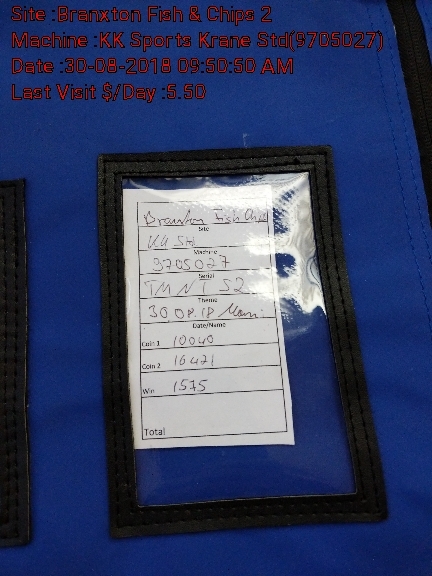 Site :Branxton Fish & Chips 2
Machine :KK Sports Krane Std(9705027)
Date :30-08-2018 09:50:50 AM
Last Visit $/Day :5.50
Branxton Fish Chips
Site
KK Std
Machine
9705027
Serial
TMNT S2
Theme
30.08.18
Date/Name
Coin 1 10040
Coin 2 16421
Win 1575
Total